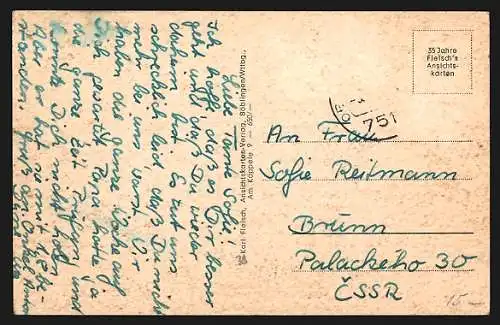 Liebe Tante Sofie!
Ich hoffe, daß es Dir besser
geht und daß Du wieder
daheim bist. Es tut uns
schrecklich leid, daß Du nicht
mehr bei uns warst. Wir
haben die ganze Woche auf
Dich gewartet. Papa hatte ja
die ganze Zeit und
konnte Dich nicht holen.
Aber er hat es mit
standen.
Karl Fleisch, Ansichtskarten-Verlag, Böblingen/Wttbg.,
Am Käppele 9
35 Jahre
Fleisch's
Ansichts-
karten
751
An Frau
Sofie Reitmann
Brünn
Palackeho 30
ČSSR
15.-